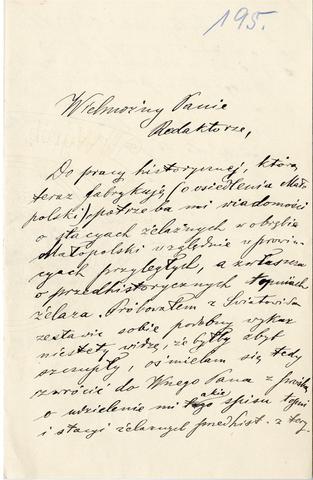 195.
Wielmożny Panie
Redaktorze,
Do pracy historycznej, którą
teraz fabrykuję (o osiedleniu Mało-
polski) potrzeba mi wiadomości
o stacyach żelaznych w obrębie
Małopolski względnie w prowin-
cyach przyległych, a zwłaszcza
o przedhistorycznych topniach
żelaza. Próbowałem z Światowita
zestawić sobie podobny wykaz
niestety widzę, że byłby zbyt
szczupły, ośmielam się tedy
zwrócić do Wnego Pana z prośbą
o udzielenie mi takiego spisu topni
i stacyi żelaznych przedhist. z tery-